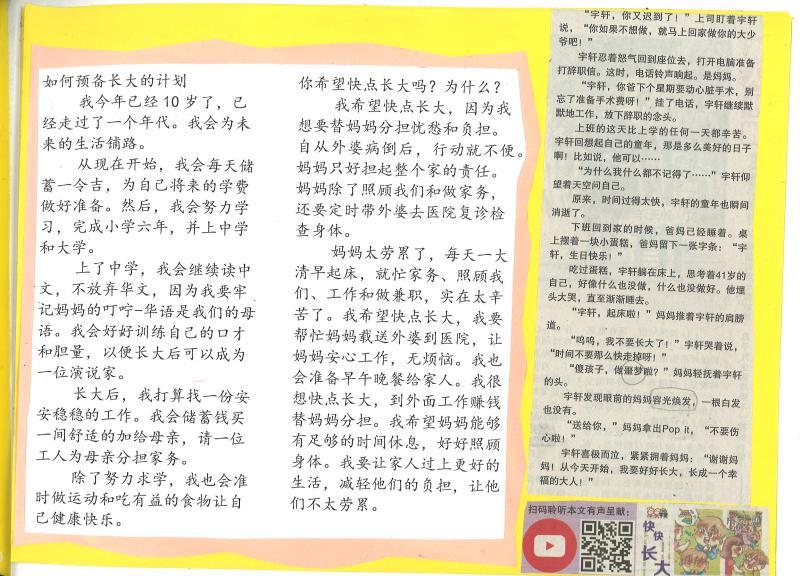 如何预备长大的计划
我今年已经10岁了，已
经走过了一个年代。我会为未
来的生活铺路。
从现在开始，我会每天储
蓄一令吉，为自己将来的学费
做好准备。然后，我会努力学
习，完成小学六年，并上中学
和大学。
上了中学，我会继续读中
文，不放弃华文，因为我要牢
记妈妈的叮咛-华语是我们的母
语。我会好好训练自己的口才
和胆量，以便长大后可以成为
一位演说家。
长大后，我打算找一份安
安稳稳的工作。我会储蓄钱买
一间舒适的加给母亲，请一位
工人为母亲分担家务。
除了努力求学，我也会准
时做运动和吃有益的食物让自
己健康快乐。
你希望快点长大吗？为什么？
我希望快点长大，因为我
想要替妈妈分担忧愁和负担。
自从外婆病倒后，行动就不便。
妈妈只好担起整个家的责任。
妈妈除了照顾我们和做家务，
还要定时带外婆去医院复诊检
查身体。
妈妈太劳累了，每天一大
清早起床，就忙家务、照顾我
们、工作和做兼职，实在太辛
苦了。我希望快点长大，我要
帮忙妈妈载送外婆到医院，让
妈妈安心工作，无烦恼。我也
会准备早午晚餐给家人。我很
想快点长大，到外面工作赚钱
替妈妈分担。我希望妈妈能够
有足够的时间休息，好好照顾
身体。我要让家人过上更好的
生活，减轻他们的负担，让他
们不太劳累。
“宇轩，你又迟到了！”上司盯着宇轩
说，“你如果不想做，就马上回家做你的大少
爷吧！”
宇轩忍着怒气回到座位去，打开电脑准备
打辞职信。这时，电话铃声响起。是妈妈。
“宇轩，你爸下个星期要动心脏手术，别
忘了准备手术费呀！”挂了电话，宇轩继续默
默地工作，放下辞职的念头。
上班的这天比上学的任何一天都辛苦。
宇轩回想起自己的童年，那是多么美好的日子
啊！比如说，他可以……
“为什么我什么都不记得了……”宇轩仰
望着天空问自己。
原来，时间过得太快，宇轩的童年也瞬间
消逝了。
下班回到家的时候，爸妈已经睡着。桌
上摆着一块小蛋糕，爸妈留下一张字条：“宇
轩，生日快乐！”
吃过蛋糕，宇轩躺在床上，思考着41岁的
自己，好像什么也没做，什么也没做好。他埋
头大哭，直至渐渐睡去。
“宇轩，起床啦！”妈妈推着宇轩的肩膀
道。
“呜呜，我不要长大了！”宇轩哭着说，
“时间不要那么快走掉呀！”
“傻孩子，做噩梦啦？”妈妈轻抚着宇轩
的头。
宇轩发现眼前的妈妈容光焕发，一根白发
也没有。
“送给你，”妈妈拿出Pop it，“不要伤
心啦！”
宇轩喜极而泣，紧紧拥着妈妈：“谢谢妈
妈！从今天开始，我要好好长大，长成一个幸
福的大人！”
扫码聆听本文有声呈献：
快快
长大